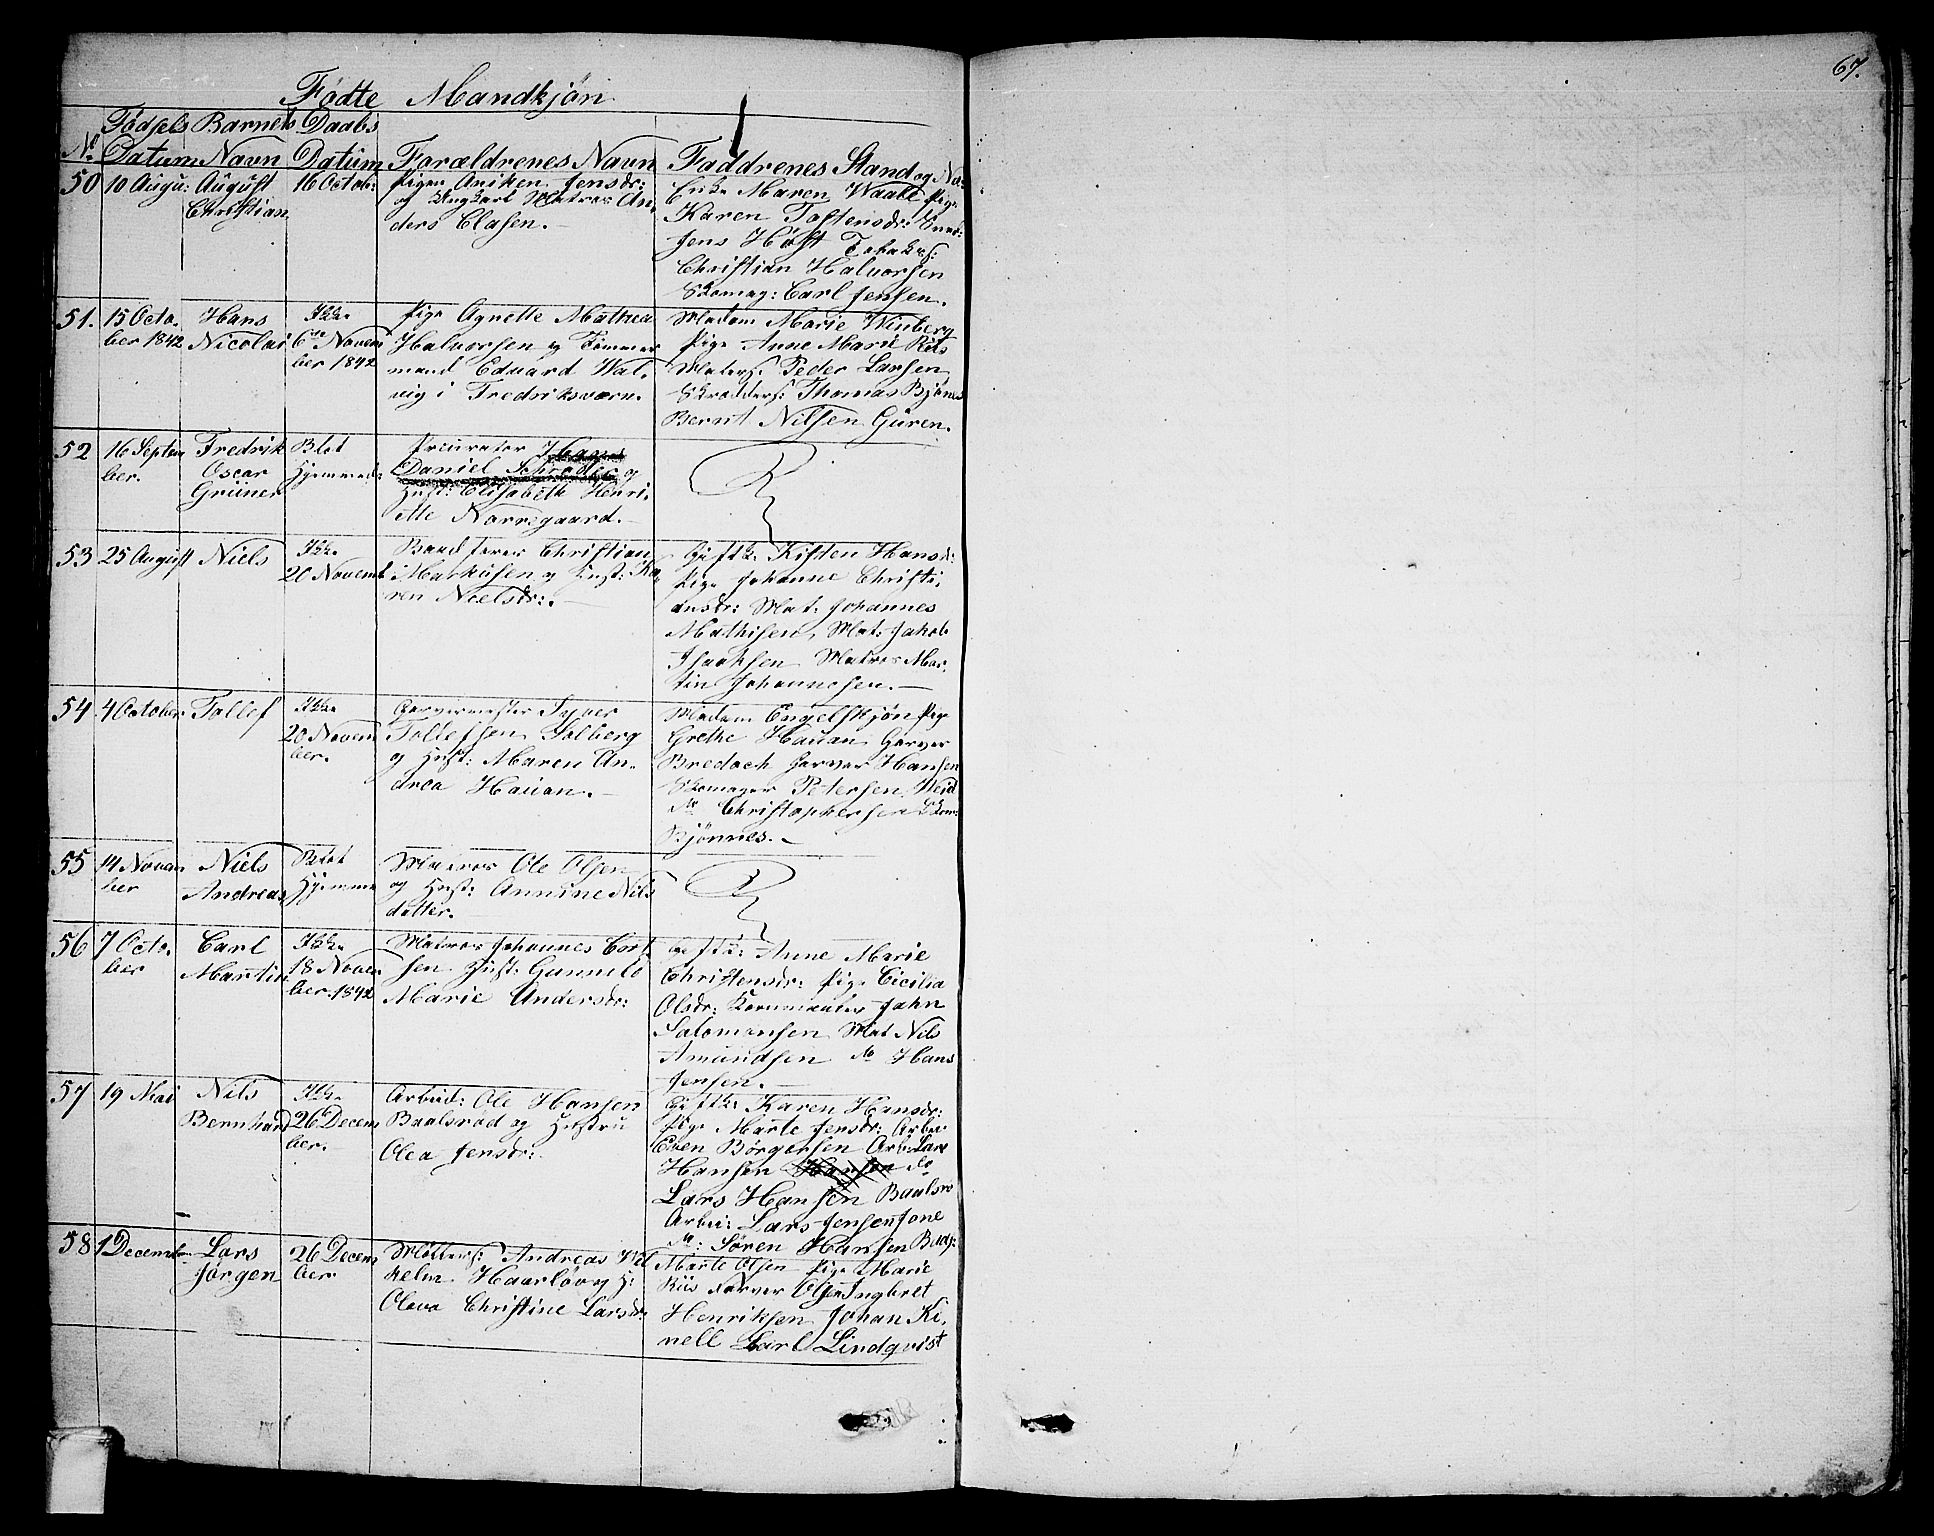 67.
Födte Mandkjön
No
Födsels Datum
Barnets Navn
Daabs Datum
Forældrenes Navn
Faddrenes Stand og Na:
50
10 Augu:
August
Christian
16 Octob:
Pigen Aniken Jensdr:
og Ungkarl Matros An,
ders Clasen.
Enke Maren Waale Pige
Karen Tostensdr:
Jens Höst
Christian Halvorsen
Skomag: Carl Jensen.
51.
15 Octo,
ber 1842
Hans
Nicolai
Kke
6te Novem
ber 1842
Pige Agnette Mathea
Halvorsen og Tömmer
mand Eduard Wal,
vig i Fredriksværn.
Madam Marie Winberg
Pige Anne Marie Riis
Peder Larsen
Skrædders: Thomas Bjönes
Bernt Nilsen Güren.
52
16 Septem
ber.
Fredrik
Oscar
Grüner
Blot
hjemmed:
Procurator Hans
Daniel Schrøder og
Hust: Elisabeth Henri,
ette Norregaard.
53
25 August
Niels
Kke
20 Novemb
Christian
Markusen og Hust: Ka,
ren Nielsdr:.
Giftk: Kisten Hansdr:
Pige Johanne Christi,
ansdr: Mat: Johannes
Mathisen, Mat: Jakob
Isaaksen Matros Mar,
tin Johannesen.
54
4 October
Tollef
Kke
20 Novem
ber.
Garvermester Syver
Tollefsen Solberg
og Hust: Maren An,
drea Hauan.
Madam Engelskjön Pige
Grethe Hauan Garver
Bredoch Garver Hansen
Skomager Petersen Weid
do Christophersen Skom:
Bjönnes.
55
14 Novem
ber
Niels
Andreas
Blot
hjemme
Matros Ole Olsen
og Hust: Annine Nils
datter.
56
7 Octo,
ber
Carl
Martin
Kke
18 Novem
ber. 1842
Matros Johannes Cort
sen Hust: Gunnild
Marie Andersdr:
Giftk: Anne Marie
Christensdr: Pige Cicilia
Olsdr: John
Salomonsen Mat Nils
Amundsen do Hans
Jensen.
57
19 Mai
Nils
Bernhard
Kke
26 Decem
ber.
Arbeid: Ole Hansen
Baalsröd og Hustru
Olea Jensdr:
Giftk: Karen Hansdr:
Pige Marte Jensdr: Arbei
Even Börgersen Arb: Lars
Hansen Hansen do
Lars Hansen Baalsrö
Arbei: Lars Jensen Jone
do: Sören Hansen
58
1 Decemb
Lars
Jörgen
26 Decem
ber
Möllers: Andreas Wil
helm Haarlöv og H:
Olava Christine Larsdr:
Marte Olsen Pige Marie
Riis Farver Olsen Ingbret
Henriksen Johan Ki,
nell Carl Lindqvist